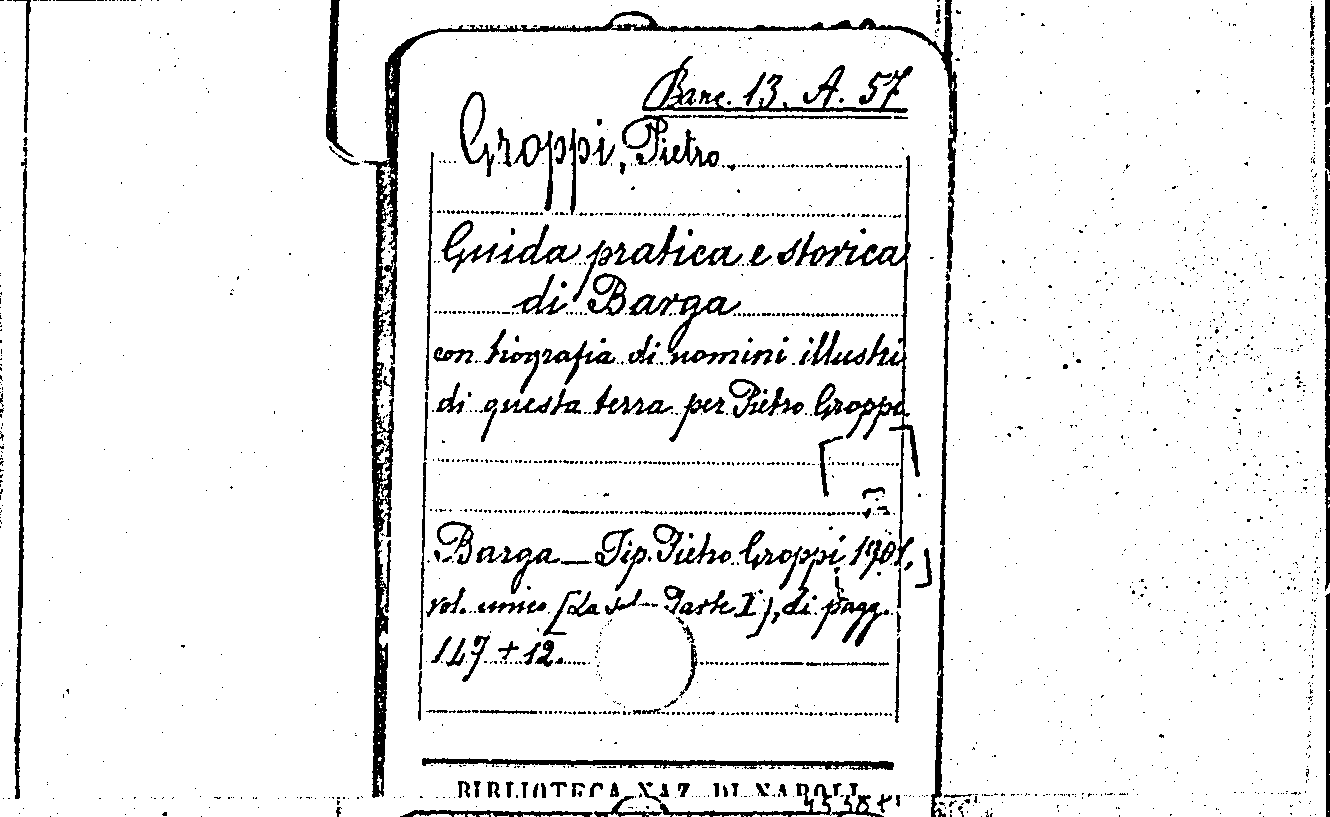 Banc. 13. A. 57
Groppi, Pietro.
Guida pratica e storica
di Barga
con biografia di uomini illustri
di questa terra per Pietro Groppi
Barga _ Tip. Pietro Groppi 1901.
vol. unico [La sol Parte I], di pagg.
147 + 12.
BIBLIOTECA NAZ. DI NAPOLI